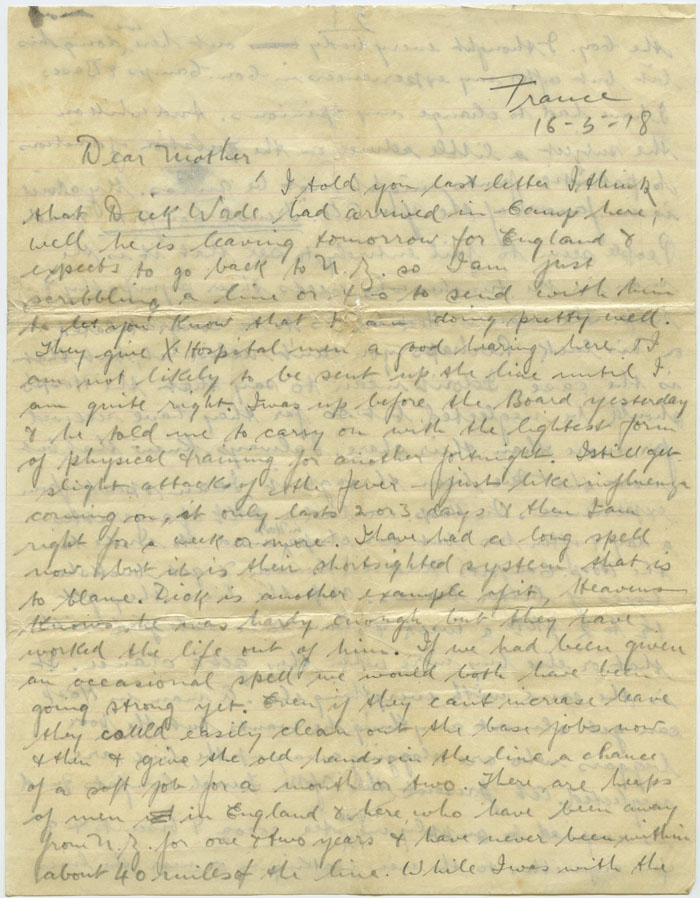 France
16-5-18
Dear Mother
I told you last letter I think
that Dick Wade had arrived in Camp here,
well he is leaving tomorrow for England &
expects to go back to N.Z. so I am just
scribbling a line or two to send with him
to let you know that I am doing pretty well.
They give X Hospital men a good hearing here & I
am not likely to be sent up the line until I
am quite right. I was up before the Board yesterday
& he told me to carry on with the lightest form
of physical training for another fortnight. I still get
slight attacks of the fever - just like influenza
coming on, it only lasts 2 or 3 days & then I am
right for a week or more. I have had a long spell
now, but it is their shortsighted system that is
to blame. Dick is another example of it, Heavens
knows he was hardy enough but they have
worked the life out of him. If we had been given
an occasional spell we would both have been
going strong yet. Even if they cant increase leave
they could easily clean out the base jobs now
& then & give the old hands in the line a chance
of a soft job for a month or two. There are heeps
of men in England & here who have been away
from N.Z. for one & two years & have never been within
about 40 miles of the line. While I was with the